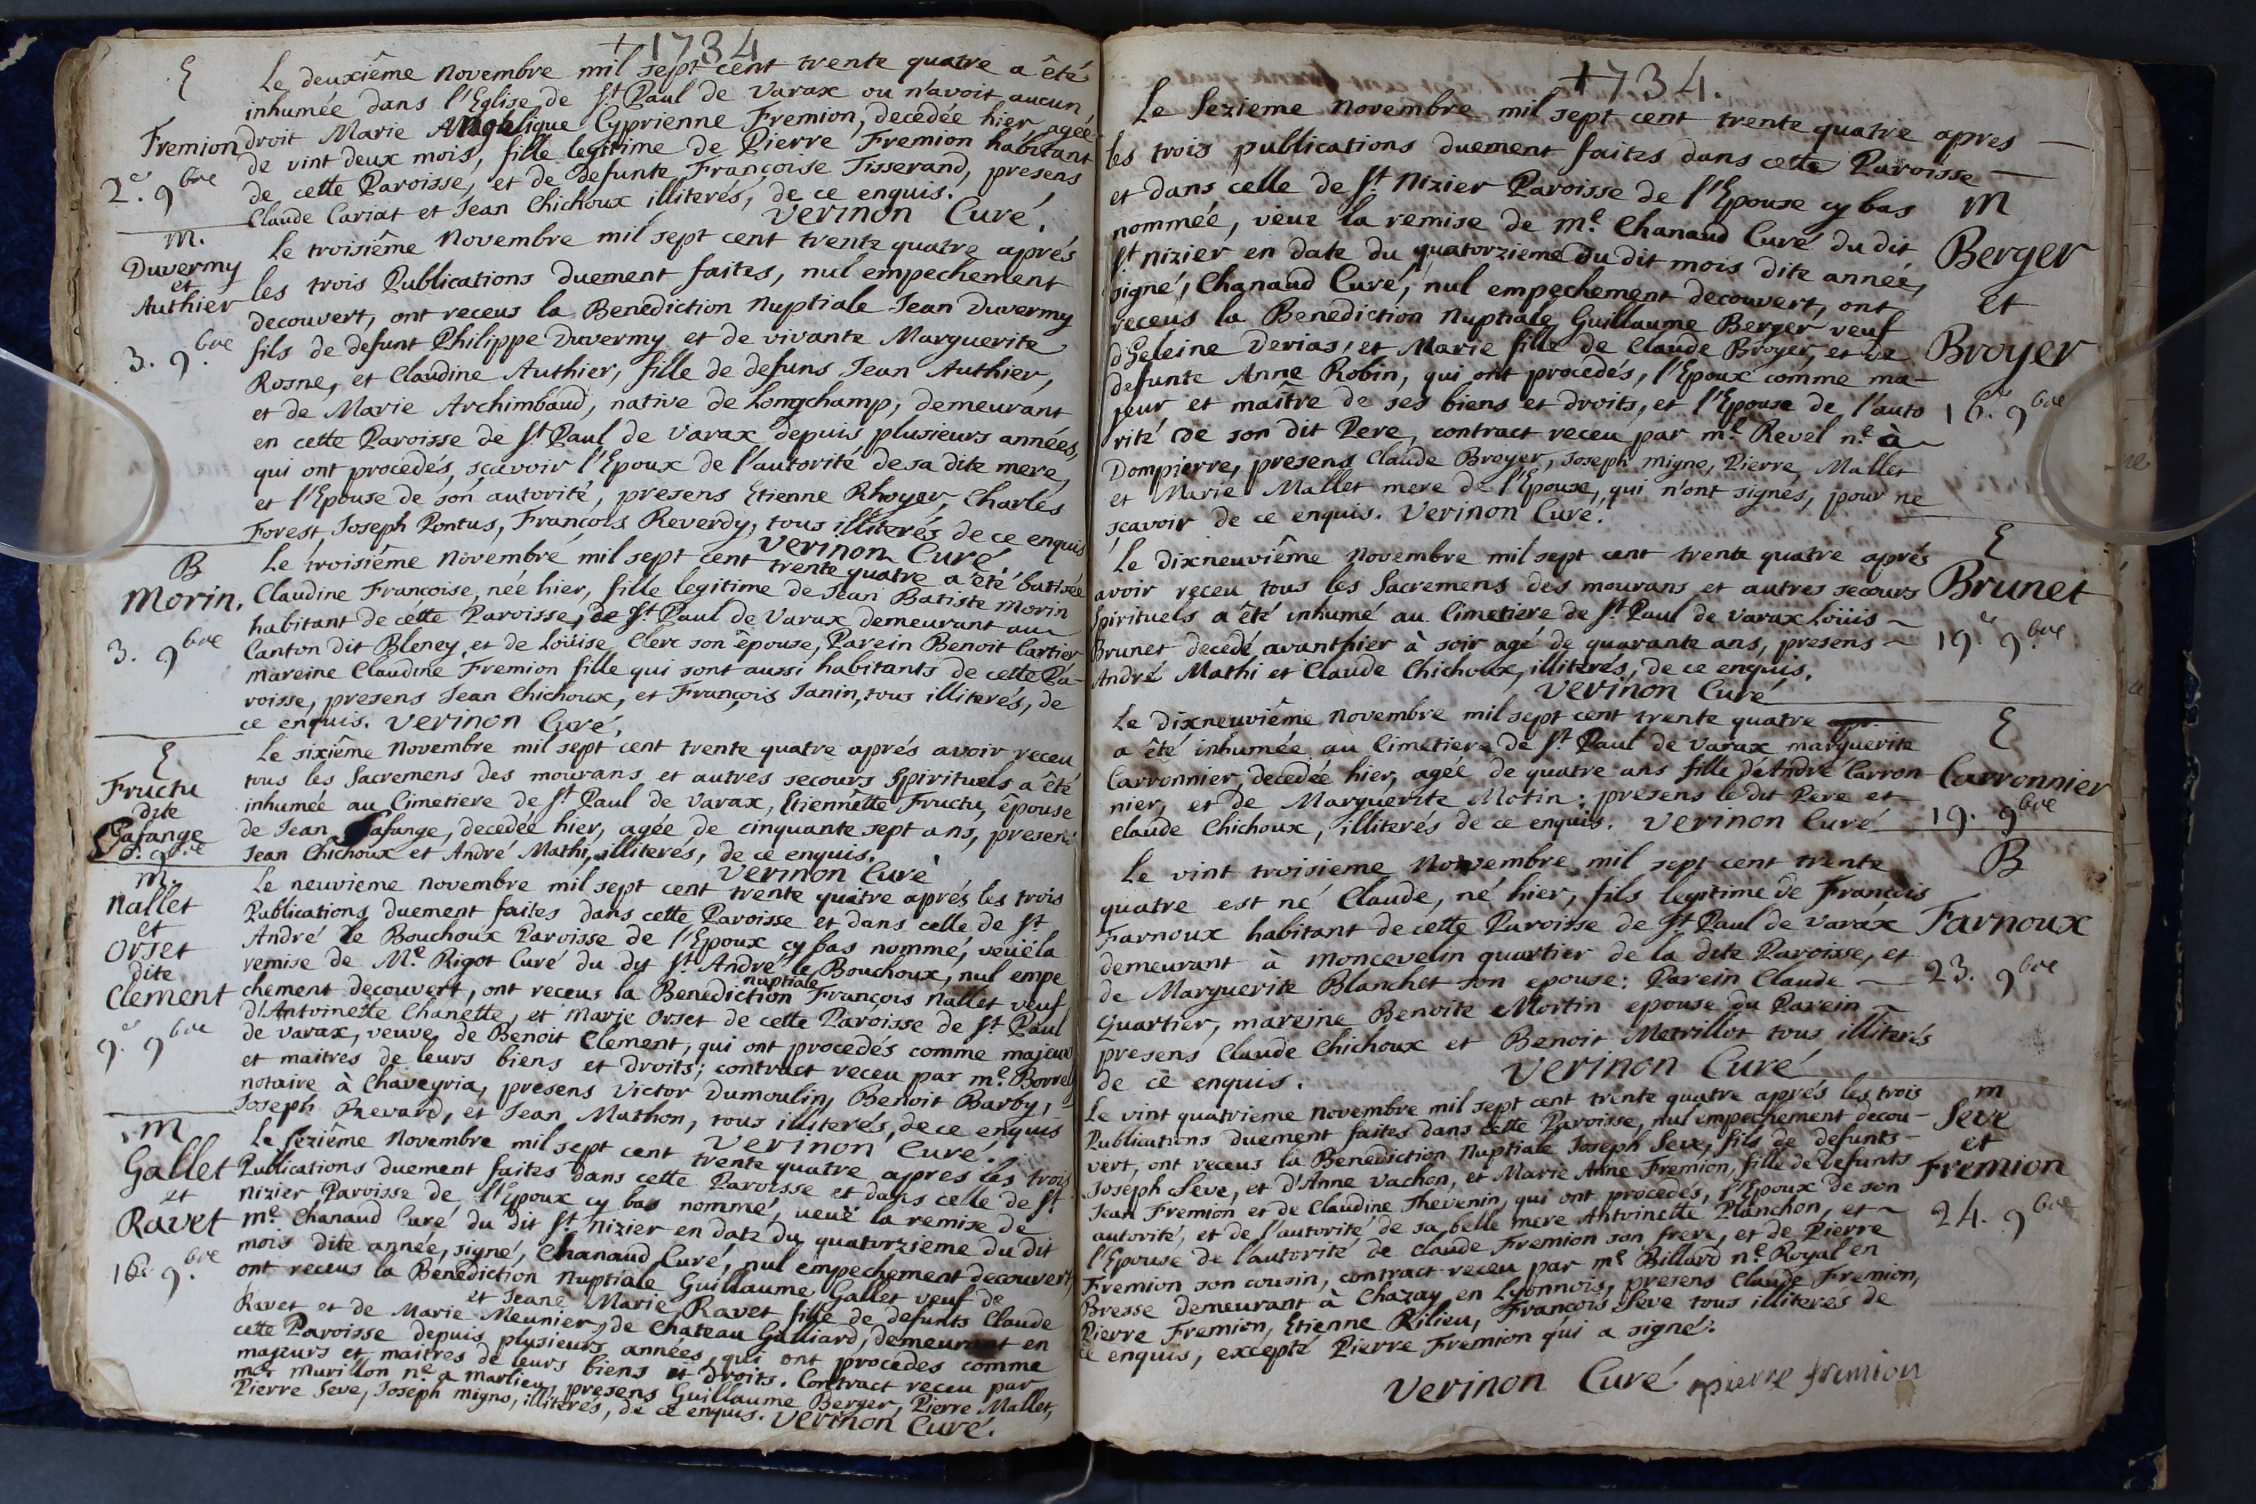 + 1734
E
Le deuxiême Novembre mil sept cent trente quatre a êté
inhumée dans l'Eglise de St Paul de Varax ou n'avoit aucun
Fremion
droit Marie Angelique Cyprienne Fremion, decedée hier agée
de vint deux mois, fille legitime de Pierre Fremion habitant
2.e 9bre
de cette Paroisse, et de defunte Françoise Tisserand, presens
Claude Cariat et Jean Chichoux illiterés, de ce enquis.
Verinon Curé.
m.
Duvermy
et
Authier
3. 9.bre
Le troisiême Novembre mil sept cent trente quatre aprés
les trois Publications duement faites, nul empechement
decouvert, ont receus la Benediction Nuptiale Jean Duvermy
fils de defunt Philippe Duvermy et de vivante Marguerite
Rosne, et Claudine Authier, fille de defuns Jean Authier,
et de Marie Archimbaud, native de Longchamp, demeurant
en cette Paroisse de St Paul de Varax depuis plusieurs années,
qui ont procedés, sçavoir l'Epoux de l'autorité de sa dite mere,
et l'Epouse de son autorité, presens Etienne Rhoyer, Charles
Forest, Joseph Pontus, François Reverdy, tous illiterés de ce enquis
Verinon Curé
B
Morin.
3. 9bre
Le troisiême Novembre mil sept cent trente quatre a êté batisée
Claudine Françoise, née hier, fille legitime de Jean Batiste Morin
habitant de cette Paroisse, de St Paul de Varax demeurant au
Canton dit Bleney, et de Loüise Clerc son êpouse, Parein Benoit Cartier
mareine Claudine Fremion fille qui sont aussi habitants de cette Pa-
roisse, presens Jean Chichoux, et François Janin, tous illiterés, de
ce enquis. Verinon Curé.
E
Fructu
dite
Lafange
6. 9bre
Le sixiême Novembre mil sept cent trente quatre aprés avoir receu
tous les Sacremens des mourans et autres secours Spirituels a êté
inhumée au Cimetiere de St Paul de Varax, Etiennette Fructu, êpouse
de Jean Lafange, decedée hier, agée de cinquante sept ans, presens
Jean Chichoux et André Mathi, illiterés, de ce enquis.
Verinon Curé
m.
Nallet
et
Orset
dite
Clement
9.e 9bre
Le neuvieme novembre mil sept cent trente quatre aprés les trois
Publications duement faites dans cette Paroisse et dans celle de St
André le Bouchoux Paroisse de l'Epoux cy bas nommé, veuë la
remise de Me Rigot Curé du dt St André le Bouchoux, nul empe
chement decouvert, ont receus la Benediction nuptiale François Nallet veuf
d'Antoinette Chanette, et Marie Orset de cette Paroisse de St Paul
de Varax, veuve de Benoit Clement, qui ont procedés comme majeurs
et maitres de leurs biens et droits; contract receu par me Borrel
notaire à Chaveyria, presens Victor Dumoulin, Benoit Barby,
Joseph Prevard, et Jean Mathon, tous illiterés, de ce enquis
Verinon Curé.
m
Gallet
et
Ravet
16.e 9.bre
Le seziême Novembre mil sept cent trente quatre apres les trois
Publications duement faites dans cette Paroisse et dans celle de St
Nizier Paroisse de l'Epoux cy bas nommé, veuë la remise de
me Chanaud Curé du dit St Nizier en date du quatorzieme du dit
mois dite année, signé, Chanaud Curé, nul empechement decouvert,
ont receus la Benediction Nuptiale Guillaume Gallet veuf de
et Jeane Marie Ravet fille de defunts Claude
Ravet et de Marie Meunier, de Chateau Galliard, demeurant en
cette Paroisse depuis plusieurs années, qui ont procedés comme
majeurs et maitres de leurs biens et droits. Contract receu par
me Murillon ne a marlieu, presens Guillaume Berger, Pierre Mallet,
Pierre Seve, Joseph migno, illiterés, de ce enquis. Verinon Curé.
+1734.
Le Sezieme Novembre mil sept cent trente quatre apres
les trois publications duement faites dans cette Paroisse
et dans celle de St Nizier Paroisse de l'Epouse cy bas
nommée, veue la remise de me Chanaud Curé du dit
St Nizier en date du quatorzieme du dit mois dite année,
signé, Chanaud Curé, nul empechement decouvert, ont
receus la Benediction Nuptiale Guillaume Berger veuf
d'Heleine Derias, et Marie fille de Claude Broyer, et de
defunte Anne Robin, qui ont procedés, l'Epoux comme ma-
jeur et maître de ses biens et droits, et l'Epouse de l'auto
rité de son dit Pere, contract receu par me Revel ne à
Dompierre, presens Claude Broyer, Joseph migne, Pierre Mallet
et Marie Mallet mere de l'Epouse, qui n'ont signés, pour ne
sçavoir de ce enquis. Verinon Curé.
m
Berger
et
Broyer
16.e 9bre
Le dixneuviême Novembre mil sept cent trente quatre aprés
avoir receu tous les Sacremens des mourans et autres secours
Spirituels a êté inhumé au Cimetiere de St Paul de Varax Loüis
Brunet decedé avanthier à soir agé de quarante ans, presens
André Mathi et Claude Chichoux, illiterés, de ce enquis.
Verinon Curé
E
Brunet
19.e 9.bre
Le dixneuviême Novembre mil sept cent trente quatre apr.
a êté inhumée au Cimetiere de St Paul de Varax marguerite
Carronnier, decedée hier, agée de quatre ans fille d'André Carron
nier, et de Marguerite Motin; presens le dit Pere et
Claude Chichoux, illiterés de ce enquis. Verinon Curé
E
Carronnier
19. 9bre
Le vint troisieme Novembre mil sept cent trente
quatre est né Claude, né hier, fils legitime de François
Farnoux habitant de cette Paroisse de St Paul de Varax
demeurant à Moncevelin quartier de la dite Paroisse, et
de Marguerite Blanchet son epouse; Parein Claude
Quartier, mareine Benoite Mortin epouse du Parein
presens Claude Chichoux et Benoit Metrillot tous illiterés
de ce enquis. Verinon Curé
B
Farnoux
23. 9bre
Le vint quatrieme Novembre mil sept cent trente quatre aprés les trois
Publications duement faites dans cette Paroisse, nul empechement decou-
vert, ont receus la Benediction Nuptiale Joseph Seve, fils de defunts
Joseph Seve, et d'Anne Vachon, et Marie Anne Fremion, fille de defunts
Jean Fremion et de Claudine Thevenin, qui ont procedés, l'Epoux de son
autorité, et de l'autorité de sa belle mere Antoinette Planchon, et
l'Epouse de l'autorité de Claude Fremion son frere, et de Pierre
Fremion son cousin, contract receu par me Billard ne Royal en
Bresse demeurant à Chazay en Lyonnois, presens Claude Fremion,
Pierre Fremion, Etienne Rilieu, François Seve tous illiterés de
ce enquis, excepté Pierre Fremion qui a signé.
m
Seve
et
Fremion
24. 9bre
Verinon Curé pierre fremion